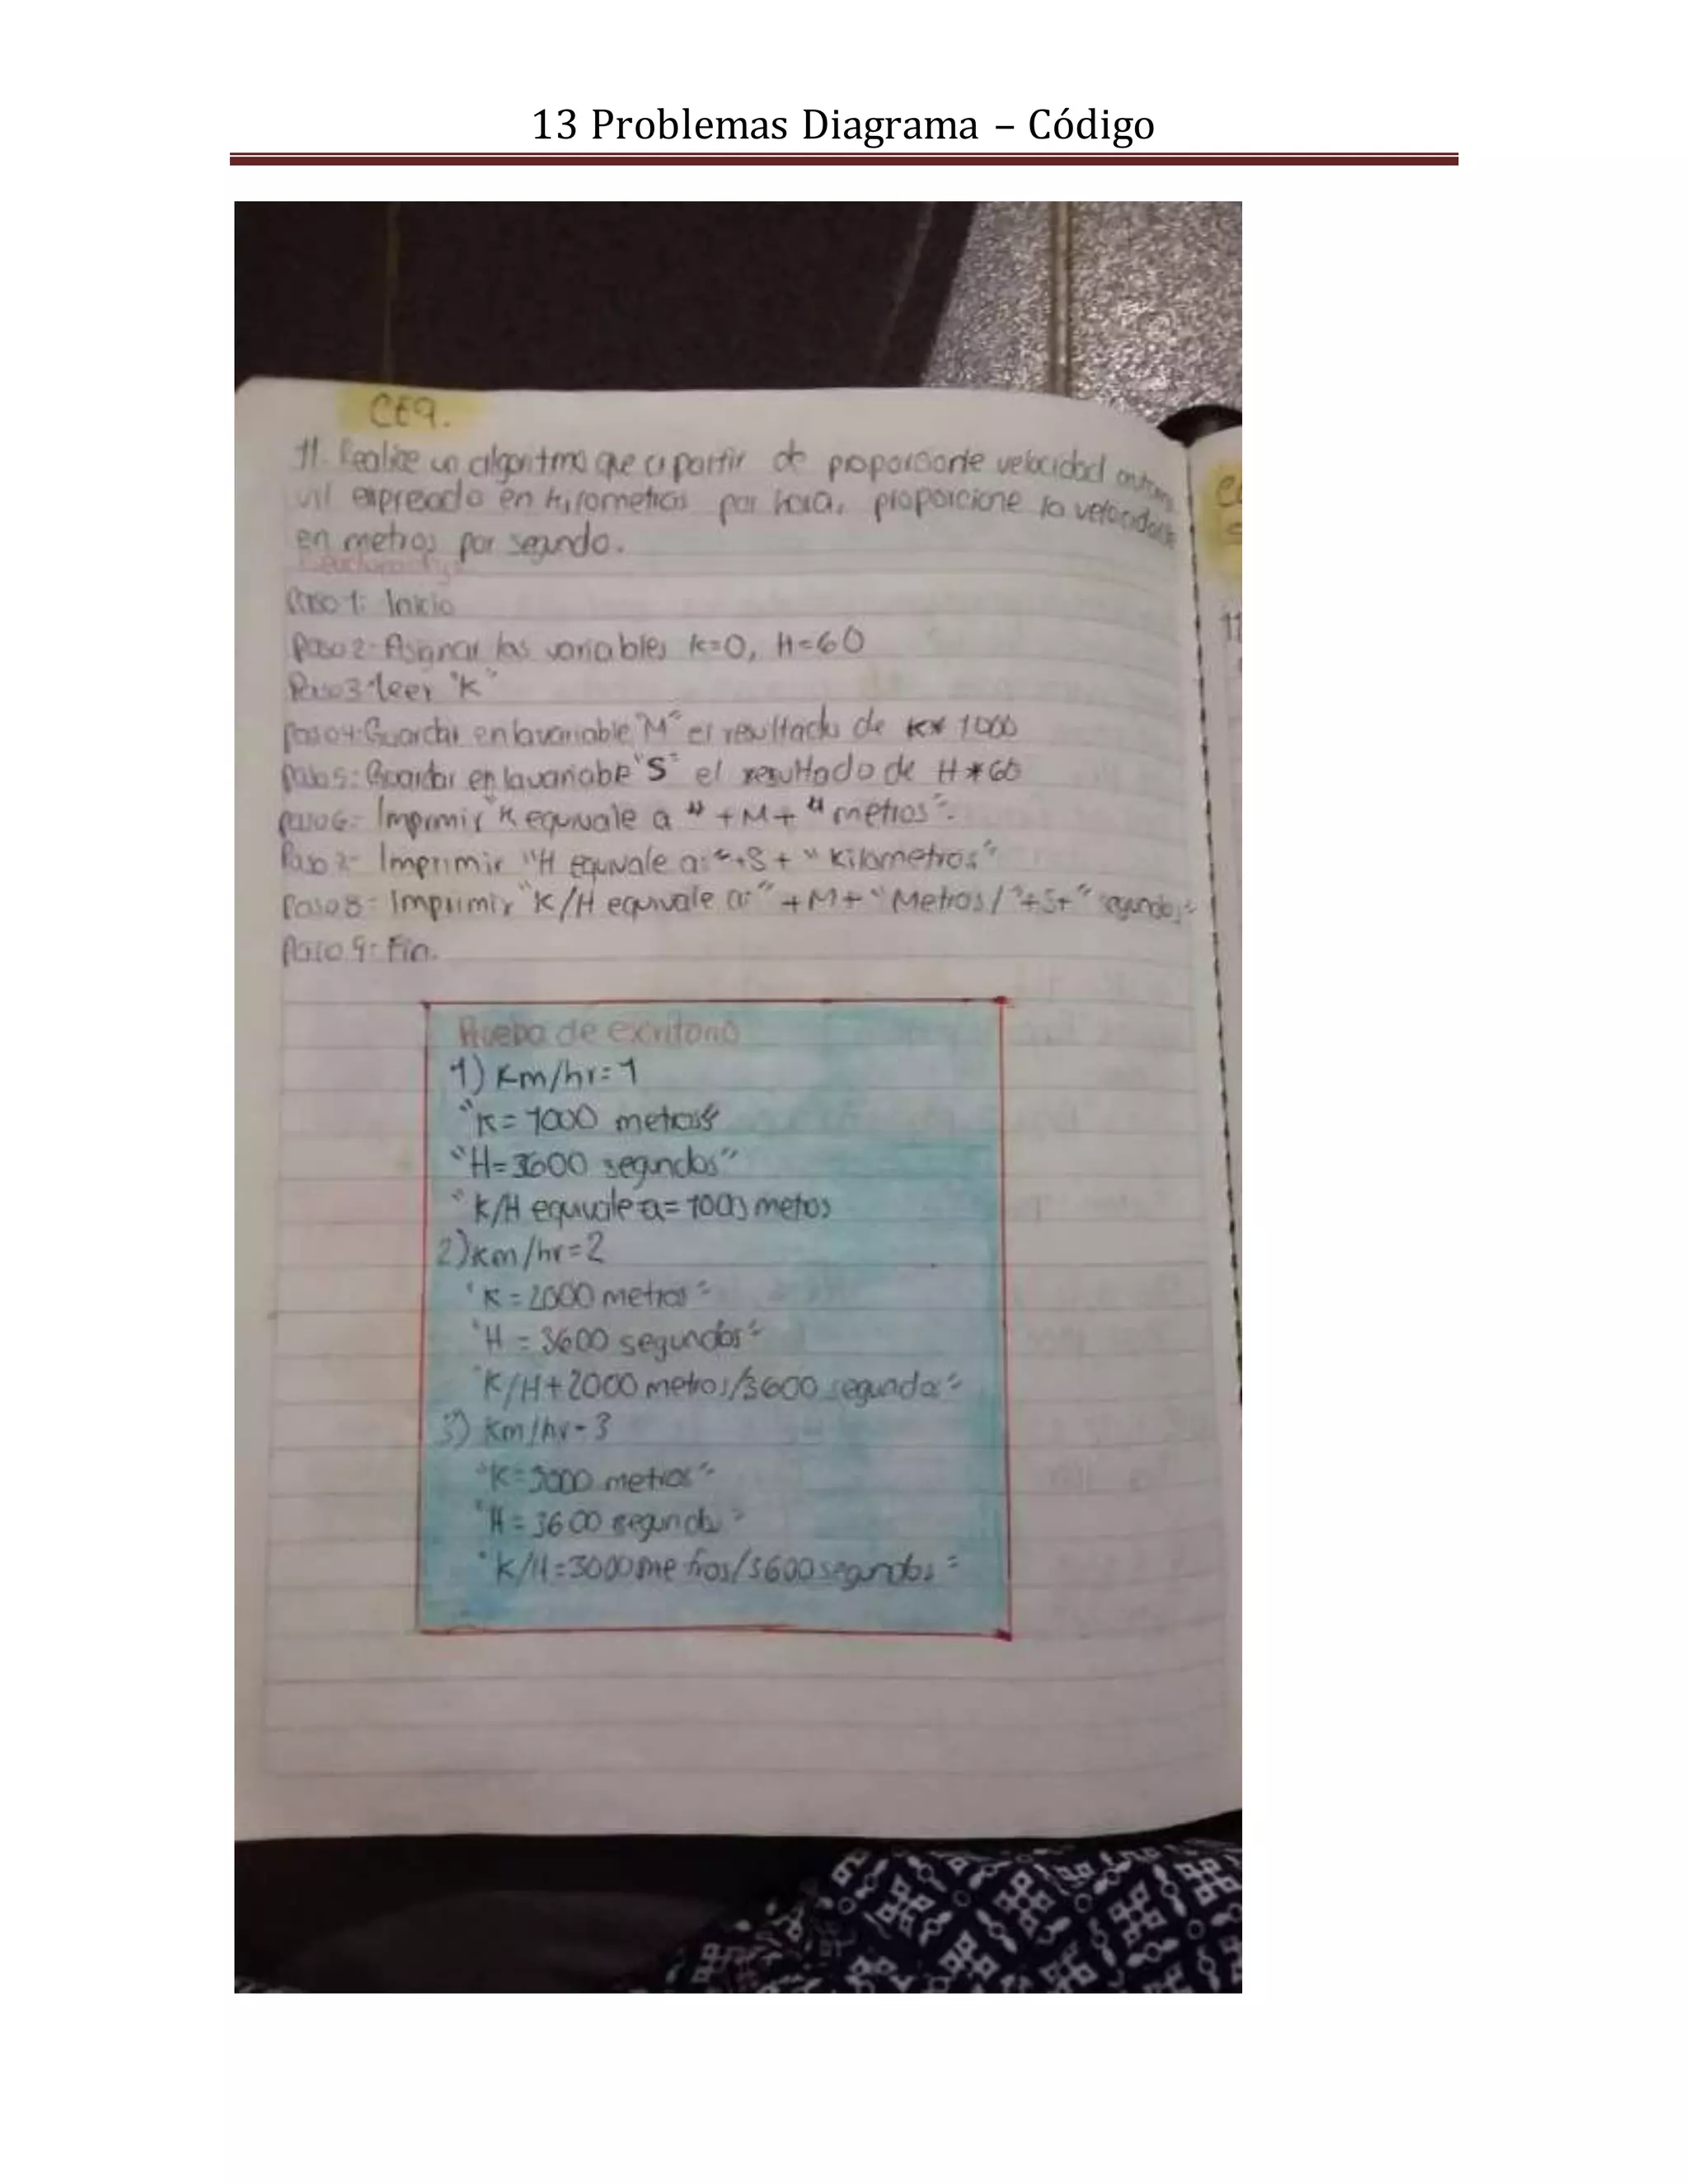 13 Problemas Diagrama – Código
CE9.
11. Realice un algoritmo que a partir de proporcione velocidad autom
vil expreado en Kilometros por hora, proporcione la velocidad
en metros por segundo.
Paso 1: Inicio
Paso 2- Asignar las variables K=0, H=60
Paso3 leer "K"
Paso4: Guardar en la variable "M" el resultado de K* 1000
Paso 5: Guardar en la variable "S" el resultado de H*60
paso6- Imprimir "K equivale a " +M+ " metros".
Paso 7- Imprimir "H equivale a: "+S+ " Kilometros"
Paso8- Imprimir "K/H equivale a:" +M+ "Metros/"+S+" segundos"
Paso 9: Fin.
Prueba de escritorio
1) Km/hr=1
"K= 1000 metros"
"H=3600 segundos"
"K/H equivale a= 1000 metos
2)Km/hr=2
"K=2000 metros"
"H = 3600 segundos"
"K/H+2000 metros/3600 segundos"
3) Km/hr-3
"K=3000 metros"
"H=3600 segundo"
"K/H=3000metros/3600segundos"
11